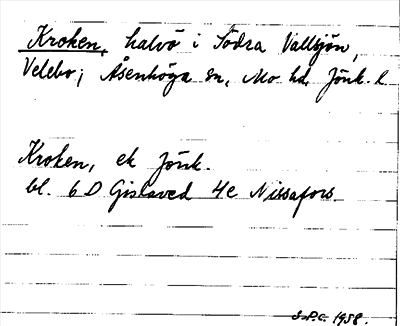 Kroken, halvö i Södra Vallsjön,
Velebo; Åsenhöga sn, Mo hd, Jönk. l.
Kroken, ek Jönk.
bl. 6 D Gislaved 4e Nissafors
S.P.C. 1958.